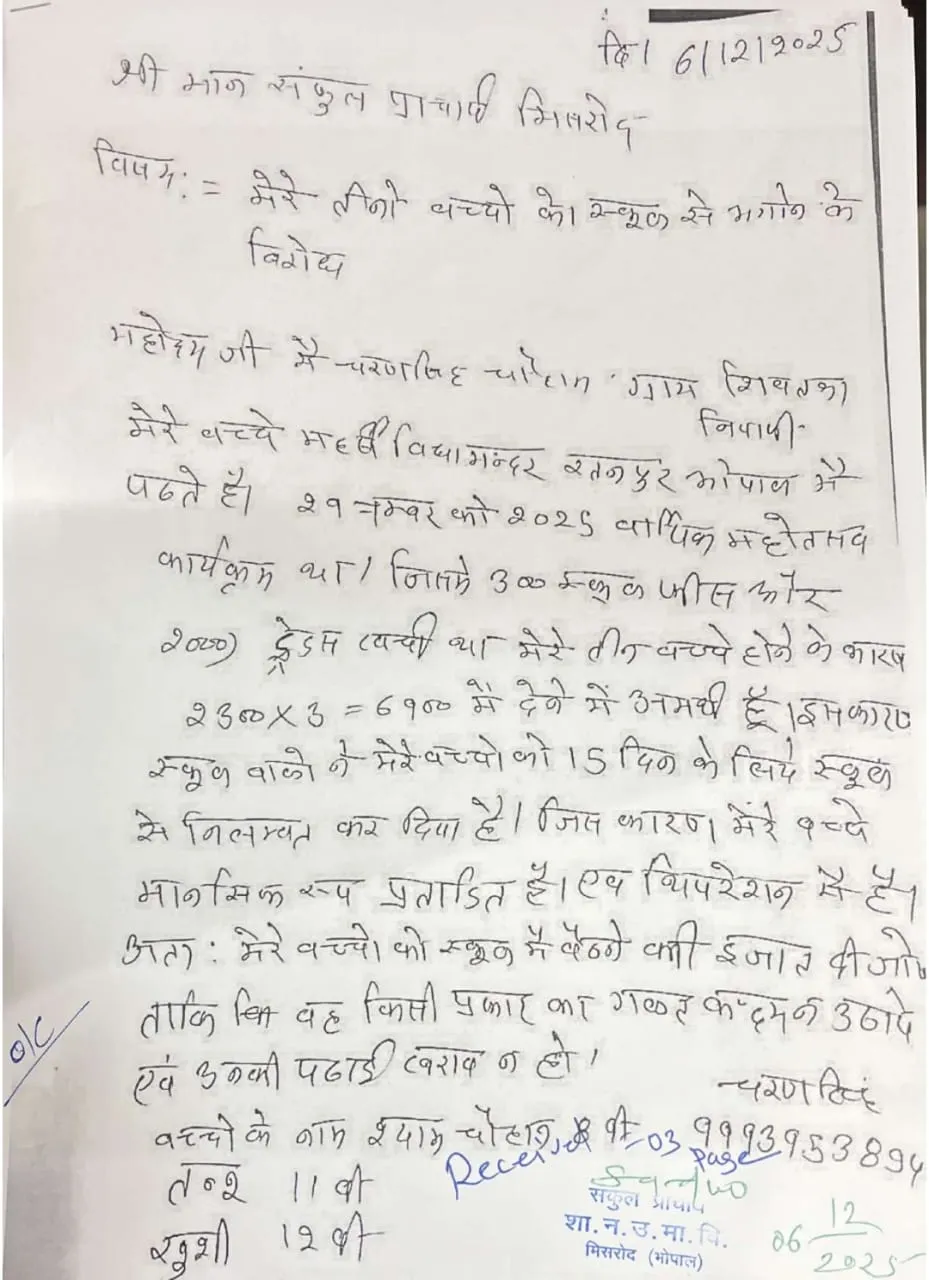 दि। 6/12/2025
श्री मान संकुल प्राचार्य मिसरोद
विषय: = मेरे तीनो बच्चो को स्कूल से भगाने के
विरोध
महोदय जी मै चरणसिह चौहान ग्राम
निवासी
मेरे बच्चे महर्षी विधामन्दर रतनपुर भोपाल मै
पढते है। २१ नम्बर को २०२५ वार्षिक महोतसव
कार्यकृम था। जिसमे 300 स्कूल फीस और
२०००) ड्रेस खर्चा था मेरे तीन बच्चे होने के कारण
२300 X 3 = 6900 मैं देने में असमर्थ हूँ। इस कारण
स्कूल वालो ने मेरे बच्चो को 15 दिन के लिये स्कूल
से निलम्वत कर दिया है। जिस कारण मेरे बच्चे
मानसिक रूप प्रताडित है। एव डिपरेशन मै है।
अता : मेरे बच्चो को स्कूल मै बैठने की इजात दी जाये
ताकि वह किसी प्रकार का गलत कदम न उठादे
एवं उनकी पढाई खराब न हो।
O/C
चरणसिंह
बच्चो के नाम श्याम चौहान वी 9993953894
Received 03 page
तन्श 11 वी
खुशी 1२ वी
संकुल प्राचार्य
शा. न. उ. मा. वि.
मिसरोद (भोपाल)
06/12/2025